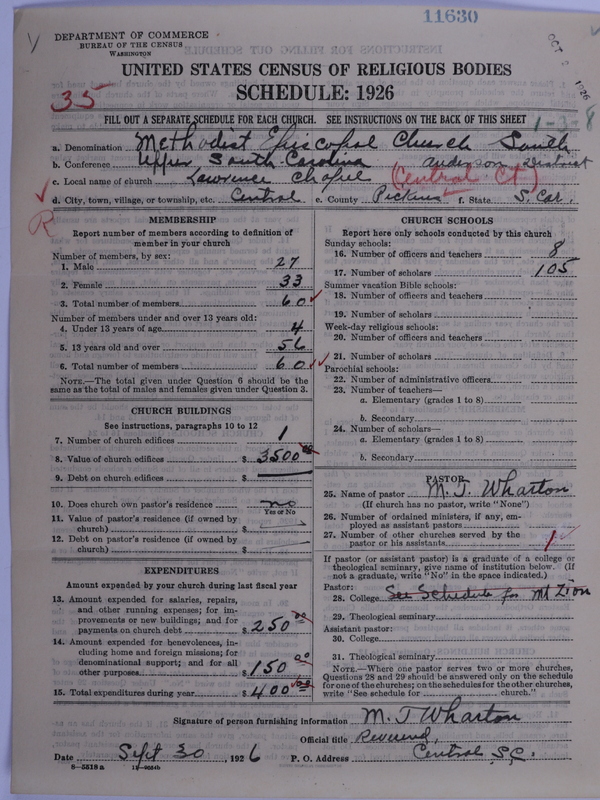 11630
DEPARTMENT OF COMMERCE
BUREAU OF THE CENSUS
WASHINGTON
OCT 2 1926
UNITED STATES CENSUS OF RELIGIOUS BODIES
SCHEDULE: 1926
35
FILL OUT A SEPARATE SCHEDULE FOR EACH CHURCH. SEE INSTRUCTIONS ON THE BACK OF THIS SHEET
1-3-8
a. Denomination Methodist Episcopal Church South
b. Conference Upper South Carolina Anderson District
c. Local name of church Lawrence Chapel (Central Ct)
d. City, town, village, or township, etc. Central e. County Pickens f. State S. Car.
R
MEMBERSHIP
Report number of members according to definition of member in your church
Number of members, by sex:
1. Male 27
2. Female 33
3. Total number of members 60
Number of members under and over 13 years old:
4. Under 13 years of age 4
5. 13 years old and over 56
6. Total number of members 60
NOTE.—The total given under Question 6 should be the same as the total of males and females given under Question 3.
CHURCH BUILDINGS
See instructions, paragraphs 10 to 12
7. Number of church edifices 1
8. Value of church edifices $ 3500 00
9. Debt on church edifices $
10. Does church own pastor's residence no
Yes or No
11. Value of pastor's residence (if owned by church) $
12. Debt on pastor's residence (if owned by church) $
EXPENDITURES
Amount expended by your church during last fiscal year
13. Amount expended for salaries, repairs, and other running expenses; for improvements or new buildings; and for payments on church debt $ 250 00
14. Amount expended for benevolences, including home and foreign missions; for denominational support; and for all other purposes $ 150 00
15. Total expenditures during year $ 400 00
CHURCH SCHOOLS
Report here only schools conducted by this church
Sunday schools:
16. Number of officers and teachers 8
17. Number of scholars 105
Summer vacation Bible schools:
18. Number of officers and teachers
19. Number of scholars
Week-day religious schools:
20. Number of officers and teachers
21. Number of scholars
Parochial schools:
22. Number of administrative officers
23. Number of teachers—
a. Elementary (grades 1 to 8)
b. Secondary
24. Number of scholars—
a. Elementary (grades 1 to 8)
b. Secondary
PASTOR
25. Name of pastor M. T. Wharton
(If church has no pastor, write "None")
26. Number of ordained ministers, if any, employed as assistant pastors
27. Number of other churches served by the pastor or his assistants 1
If pastor (or assistant pastor) is a graduate of a college or theological seminary, give name of institution below. (If not a graduate, write "No" in the space indicated.)
Pastor:
28. College See Schedule for Mt Zion
29. Theological seminary
Assistant pastor:
30. College
31. Theological seminary
NOTE.—Where one pastor serves two or more churches, Questions 28 and 29 should be answered only on the schedule for one of the churches; on the schedules for the other churches, write "See schedule for ______ church."
Signature of person furnishing information M. T Wharton
Official title Reverend,
Date Sept 30, 1926 P. O. Address Central S.C.
8—5518 a